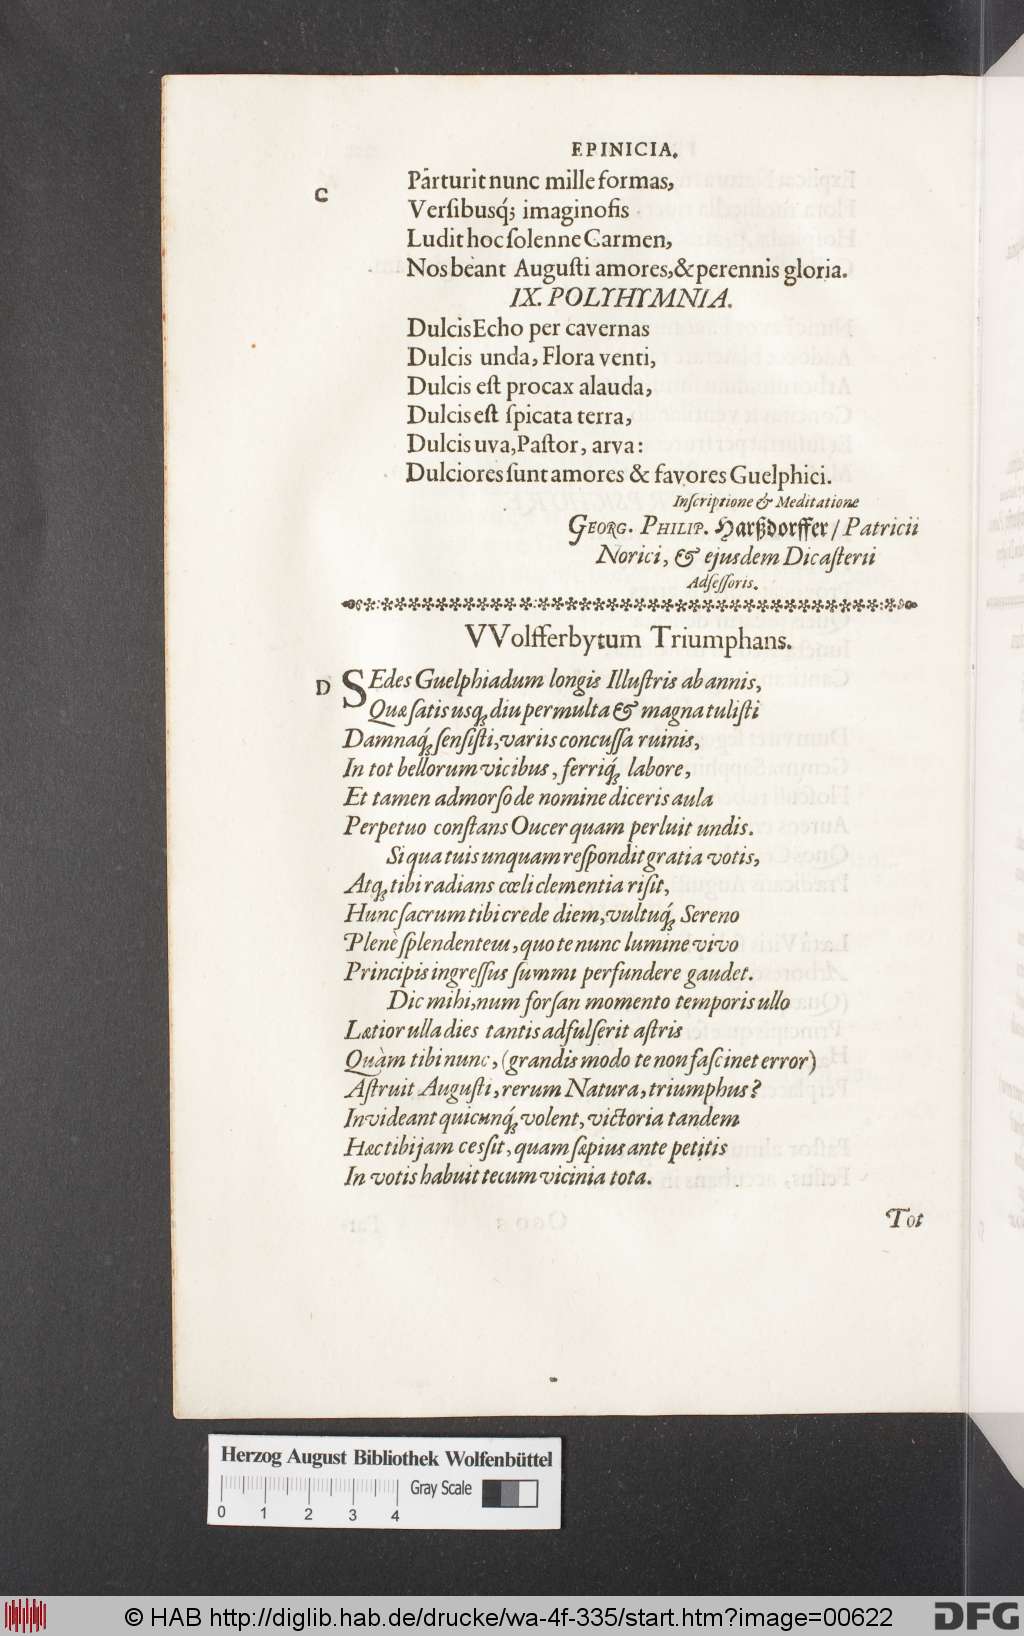 EPINICIA.
C
Parturit nunc mille formas,
Verſibusq́; imaginoſis
Ludit hoc ſolenne Carmen,
Nos beant Auguſti amores, & perennis gloria.
IX. POLYHYMNIA.
Dulcis Echo per cavernas
Dulcis unda, Flora venti,
Dulcis eſt procax alauda,
Dulcis eſt ſpicata terra,
Dulcis uva, Paſtor, arva:
Dulciores ſunt amores & favores Guelphici.
Inſcriptione & Meditatione
GEORG. PHILIP. Harßdorffer / Patricii
Norici, & ejusdem Dicaſterii
Adſeſſoris.
VVolfferbytum Triumphans.
D
SEdes Guelphiadum longis Illuſtris ab annis,
Quæ ſatis usq; diu per multa & magna tuliſti
Damnaq́; ſenſiſti, variis concuſſa ruinis,
In tot bellorum vicibus, ferriq́; labore,
Et tamen admorſo de nomine diceris aula
Perpetuo conſtans Oucer quam perluit undis.
Si qua tuis unquam reſpondit gratia votis,
Atq; tibi radians cœli clementia riſit,
Hunc ſacrum tibi crede diem, vultuq́; Sereno
Plenè ſplendentem, quo te nunc lumine vivo
Principis ingreſſus ſummi perfundere gaudet.
Dic mihi, num forſan momento temporis ullo
Lætior ulla dies tantis adfulſerit aſtris
Quàm tibi nunc, (grandis modo te non faſcinet error)
Aſtruit Auguſti, rerum Natura, triumphus?
Invideant quicunq́; volent, victoria tandem
Hæc tibi jam ceſſit, quam ſæpius ante petitis
In votis habuit tecum vicinia tota.
Tot
Herzog August Bibliothek Wolfenbüttel
Gray Scale
0 1 2 3 4
© HAB http://diglib.hab.de/drucke/wa-4f-335/start.htm?image=00622
DFG